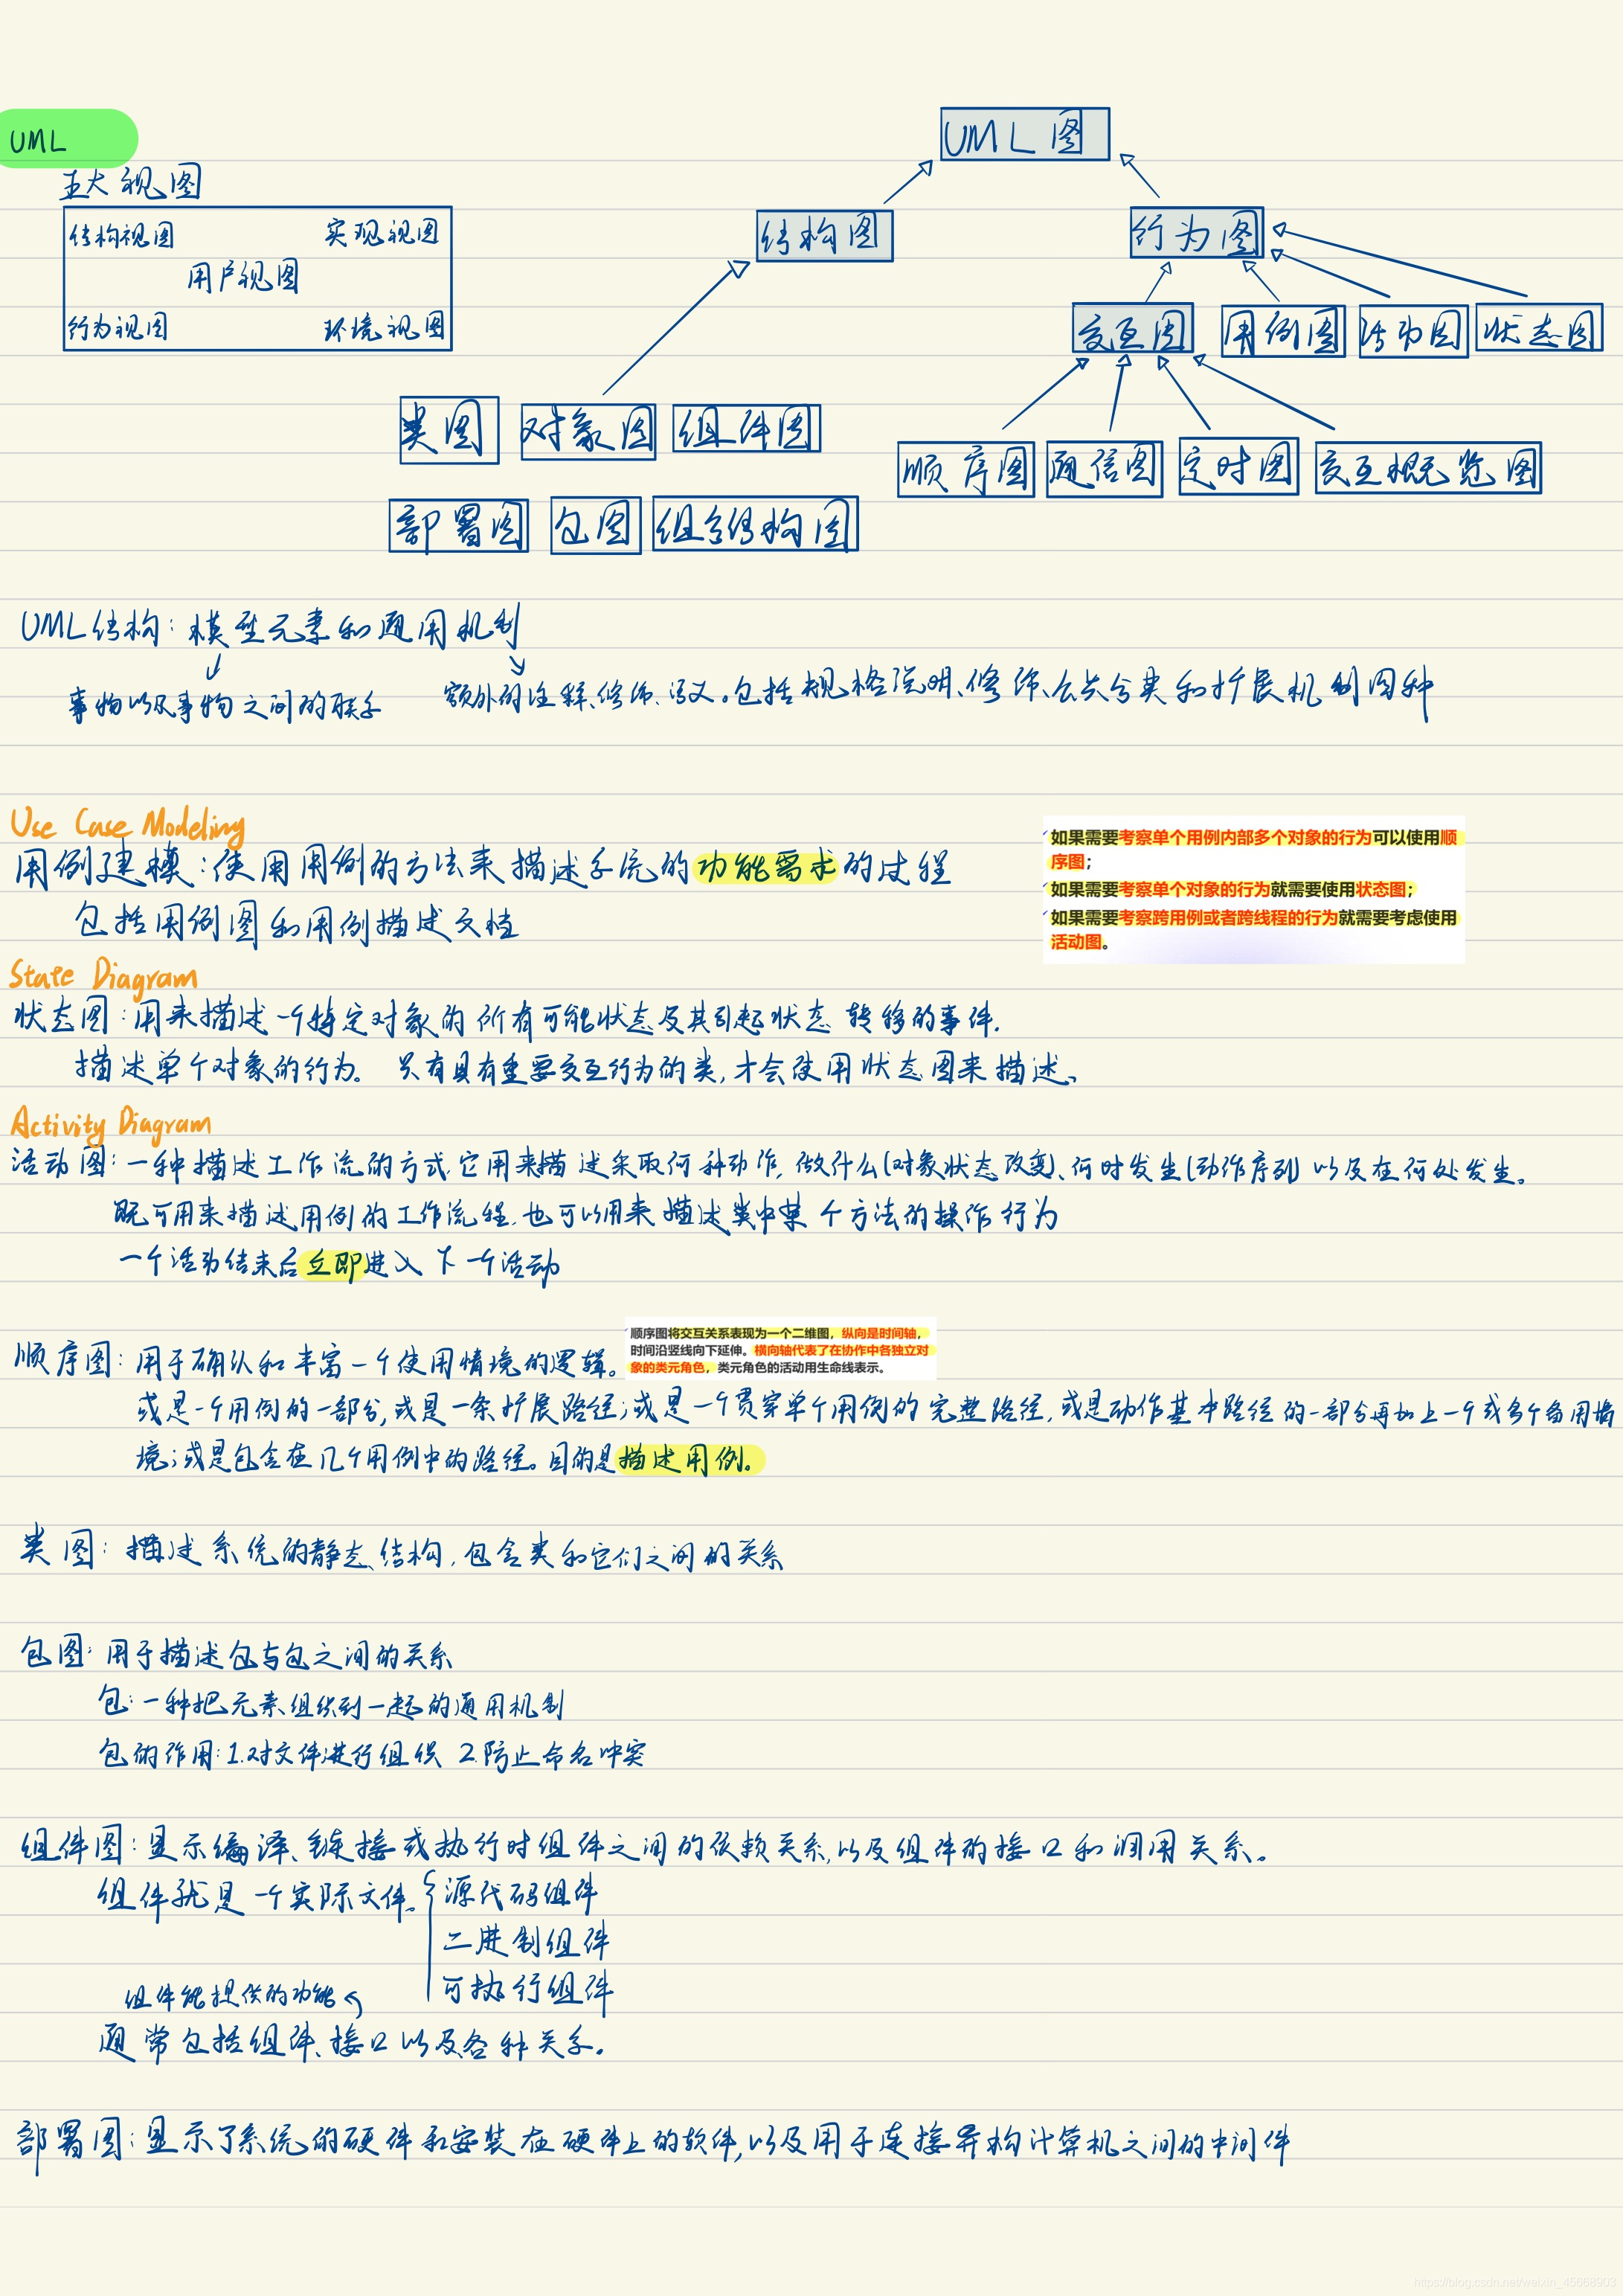 UML
五大视图
结构视图 实现视图
用户视图
行为视图 环境视图
UML图
结构图 行为图
交互图 用例图 活动图 状态图
类图 对象图 组件图
顺序图 通信图 定时图 交互概览图
部署图 包图 组合结构图
UML结构：模型元素和通用机制
事物以及事物之间的联系
额外的注释、修饰、语义。包括规格说明、修饰、公共分类和扩展机制四种
Use Case Modeling
用例建模：使用用例的方法来描述系统的功能需求的过程
包括用例图和用例描述文档
如果需要考察单个用例内部多个对象的行为可以使用顺
序图；
如果需要考察单个对象的行为就需要使用状态图；
如果需要考察跨用例或者跨线程的行为就需要考虑使用
活动图。
State Diagram
状态图：用来描述一个特定对象的所有可能状态及其引起状态转移的事件.
描述单个对象的行为。只有具有重要交互行为的类,才会使用状态图来描述。
Activity Diagram
活动图：一种描述工作流的方式,它用来描述采取何种动作,做什么(对象状态改变)、何时发生(动作序列)以及在何处发生。
既可用来描述用例的工作流程,也可以用来描述类中某个方法的操作行为
一个活动结束后立即进入下一个活动
顺序图：用于确认和丰富一个使用情境的逻辑。
顺序图将交互关系表现为一个二维图，纵向是时间轴，
时间沿竖线向下延伸。横向轴代表了在协作中各独立对
象的类元角色，类元角色的活动用生命线表示。
或是一个用例的一部分,或是一条扩展路径;或是一个贯穿单个用例的完整路径,或是动作基本路径的一部分再加上一个或多个备用情
境;或是包含在几个用例中的路径。目的是描述用例。
类图：描述系统的静态结构,包含类和它们之间的关系
包图：用于描述包与包之间的关系
包：一种把元素组织到一起的通用机制
包的作用：1.对文件进行组织 2.防止命名冲突
组件图：显示编译、链接或执行时组件之间的依赖关系,以及组件的接口和调用关系。
组件就是一个实际文件。
源代码组件
二进制组件
可执行组件
组件能提供的功能
通常包括组件、接口以及各种关系.
部署图：显示了系统的硬件和安装在硬件上的软件,以及用于连接异构计算机之间的中间件
https://blog.csdn.net/weixin_45668903